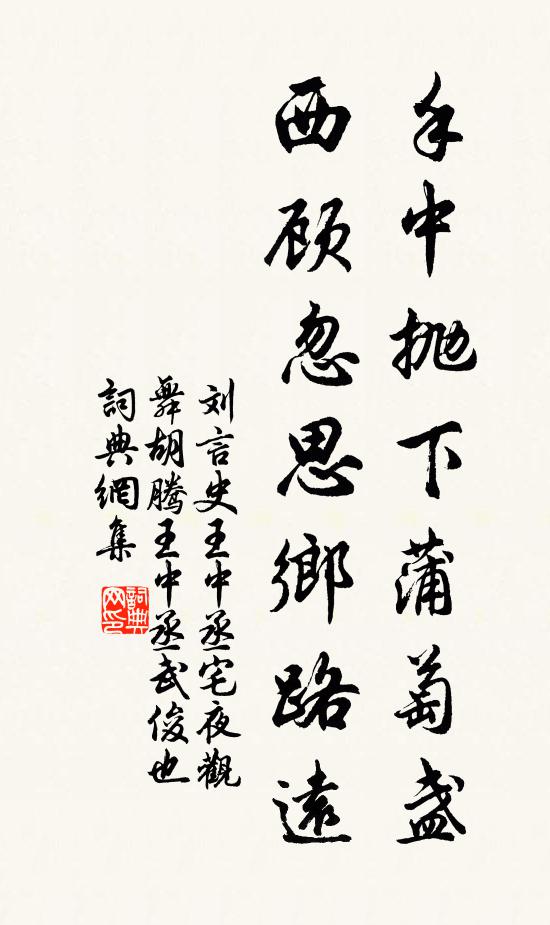 手中抛下蒲萄盏
西顾忽思鄉路遠
刘言史王中丞宅夜觀
舞胡腾王中丞武俊也
詞典網集
詞典
网印